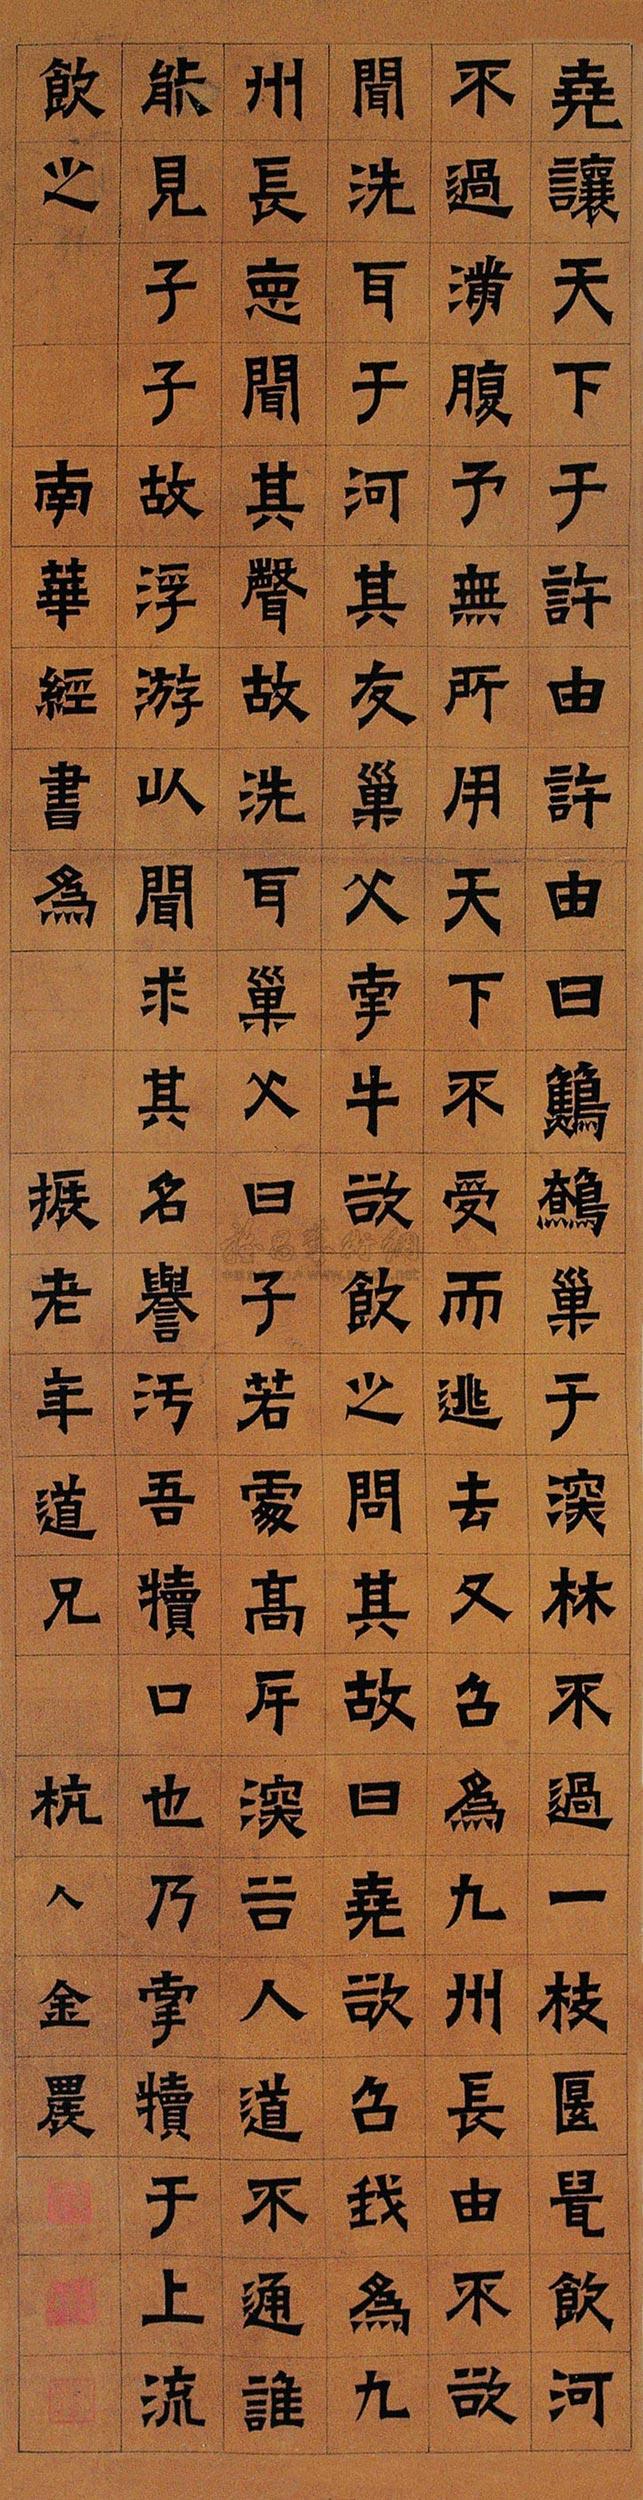 堯讓天下于許由許由曰鷦鷯巢于深林不過一枝匽鼠飲河
不過滿腹予無所用天下不受而逃去又召爲九州長由不欲
聞洗耳于河其友巢父牽牛欲飲之問其故曰堯欲召我爲九
州長惡聞其聲故洗耳巢父曰子若處高岸深谷人道不通誰
能見子子故浮游以聞求其名譽汚吾犢口也乃牽犢于上流
飲之 南華經書爲 振老年道兄 杭人金農